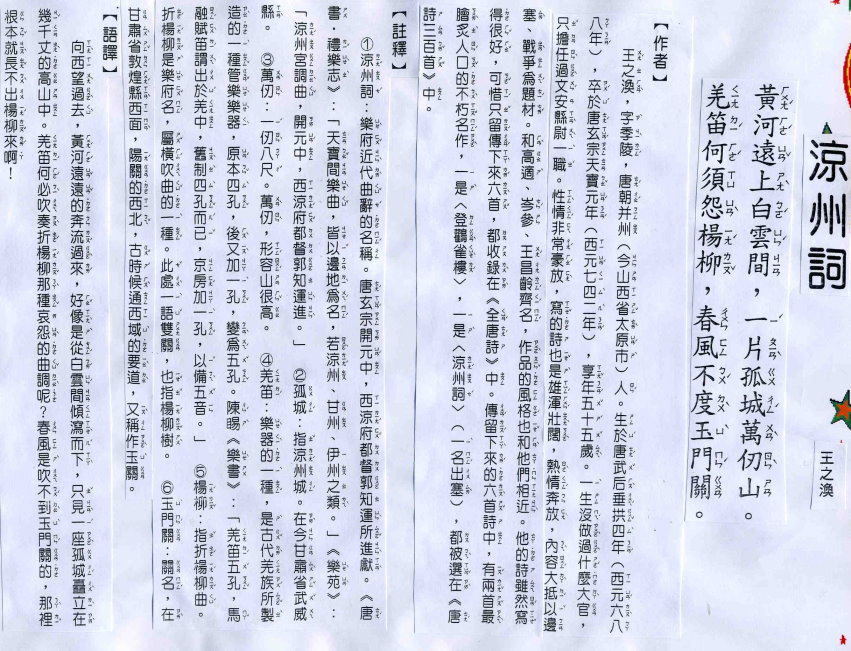 涼州詞
王之渙
黃河遠上白雲間，一片孤城萬仞山。
羌笛何須怨楊柳，春風不度玉門關。
【作者】
王之渙，字季陵，唐朝并州（今山西省太原市）人。生於唐武后垂拱四年（西元六八
八年），卒於唐玄宗天寶元年（西元七四二年），享年五十五歲。一生沒做過什麼大官，
只擔任過文安縣尉一職。性情非常豪放，寫的詩也是雄渾壯闊，熱情奔放，內容大抵以邊
塞、戰爭為題材。和高適、岑參、王昌齡齊名，作品的風格也和他們相近。他的詩雖然寫
得很好，可惜只留傳下來六首，都收錄在《全唐詩》中。傳留下來的六首詩中，有兩首最
膾炙人口的不朽名作，一是〈登鸛雀樓〉，一是〈涼州詞〉（一名出塞），都被選在《唐
詩三百首》中。
【註釋】
①涼州詞：樂府近代曲辭的名稱。唐玄宗開元中，西涼府都督郭知運所進獻。《唐
書．禮樂志》：「天寶間樂曲，皆以邊地為名，若涼州、甘州、伊州之類。」《樂苑》：
「涼州宮調曲，開元中，西涼府都督郭知運進。」　②孤城：指涼州城。在今甘肅省武威
縣。　③萬仞：一仞八尺。萬仞，形容山很高。　④羌笛：樂器的一種，是古代羌族所製
造的一種管樂樂器，原本四孔，後又加一孔，變為五孔。陳暘《樂書》：「羌笛五孔，馬
融賦笛謂出於羌中，舊制四孔而已，京房加一孔，以備五音。」　⑤楊柳：指折楊柳曲。
折楊柳是樂府名，屬橫吹曲的一種。此處一語雙關，也指楊柳樹。　⑥玉門關：關名，在
甘肅省敦煌縣西面，陽關的西北，古時候通西域的要道，又稱作玉關。
【語譯】
向西望過去，黃河遠遠的奔流過來，好像是從白雲間傾瀉而下，只見一座孤城矗立在
幾千丈的高山中。羌笛何必吹奏折楊柳那種哀怨的曲調呢？春風是吹不到玉門關的，那裡
根本就長不出楊柳來啊！